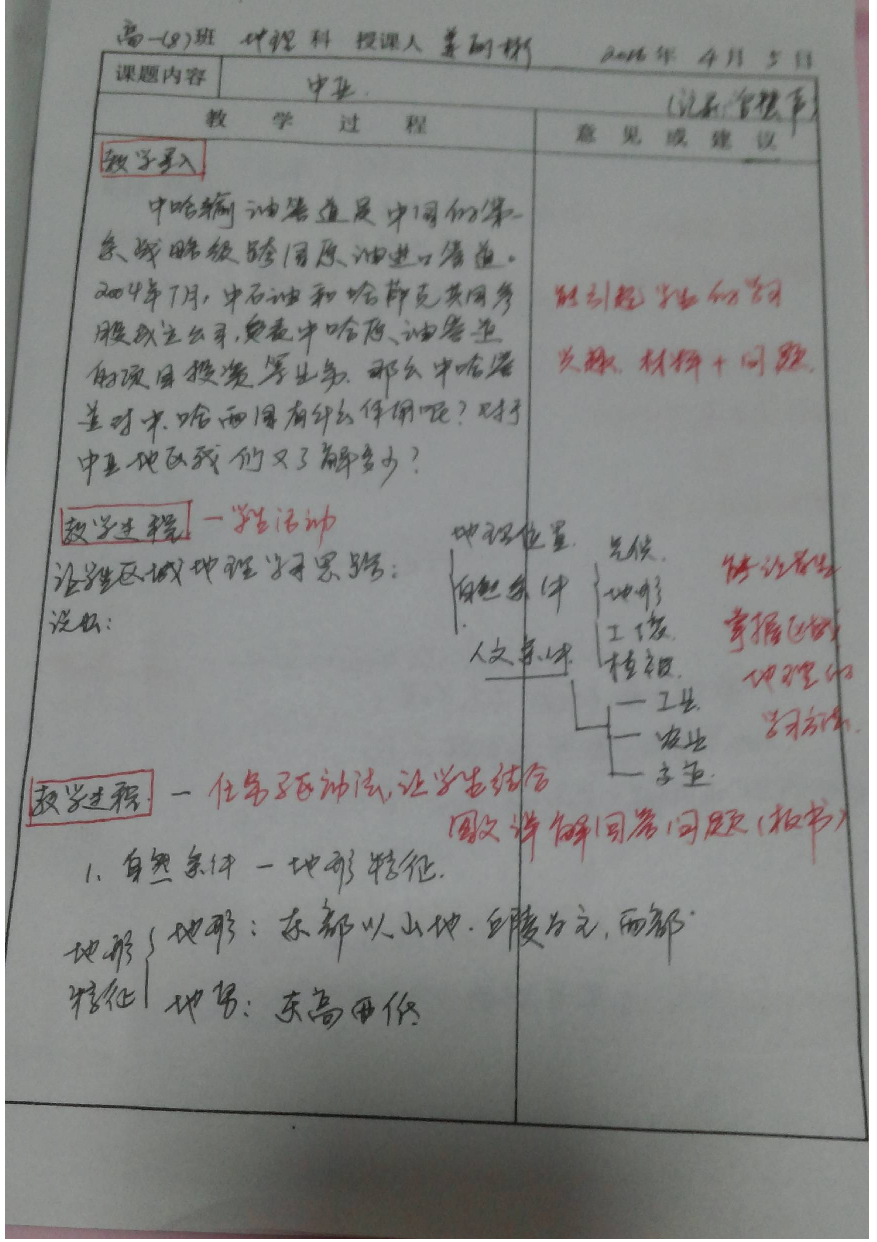 高一(8)班 地理 科 授课人 2016年 4月 5日
课题内容 中亚.
教 学 过 程 意 见 或 建 议
教学导入
中哈输油管道是中国的第一
条战略级跨国原油进口管道。
2004年7月,中石油和哈 共同参
股成立公司,负责中哈原油管道
的项目投资等业务. 那么中哈管
道对中.哈两国有什么作用呢?对于
中亚地区我们又了解多少?
能引起学生的学习
兴趣. 材料+问题.
教学过程 一学生活动
让学生区域地理学习思路:
说出:
地理位置.
自然条件
气候.
地形
植被.
人文条件
工业.
农业
交通.
能让学生
掌握区域
地理的
学习方法.
教学过程. 一 任务驱动法,让学生结合
图文详解回答问题(板书)
1. 自然条件 一 地形特征.
地形特征
地形: 东部以山地.丘陵为主,西部
地势: 东高西低